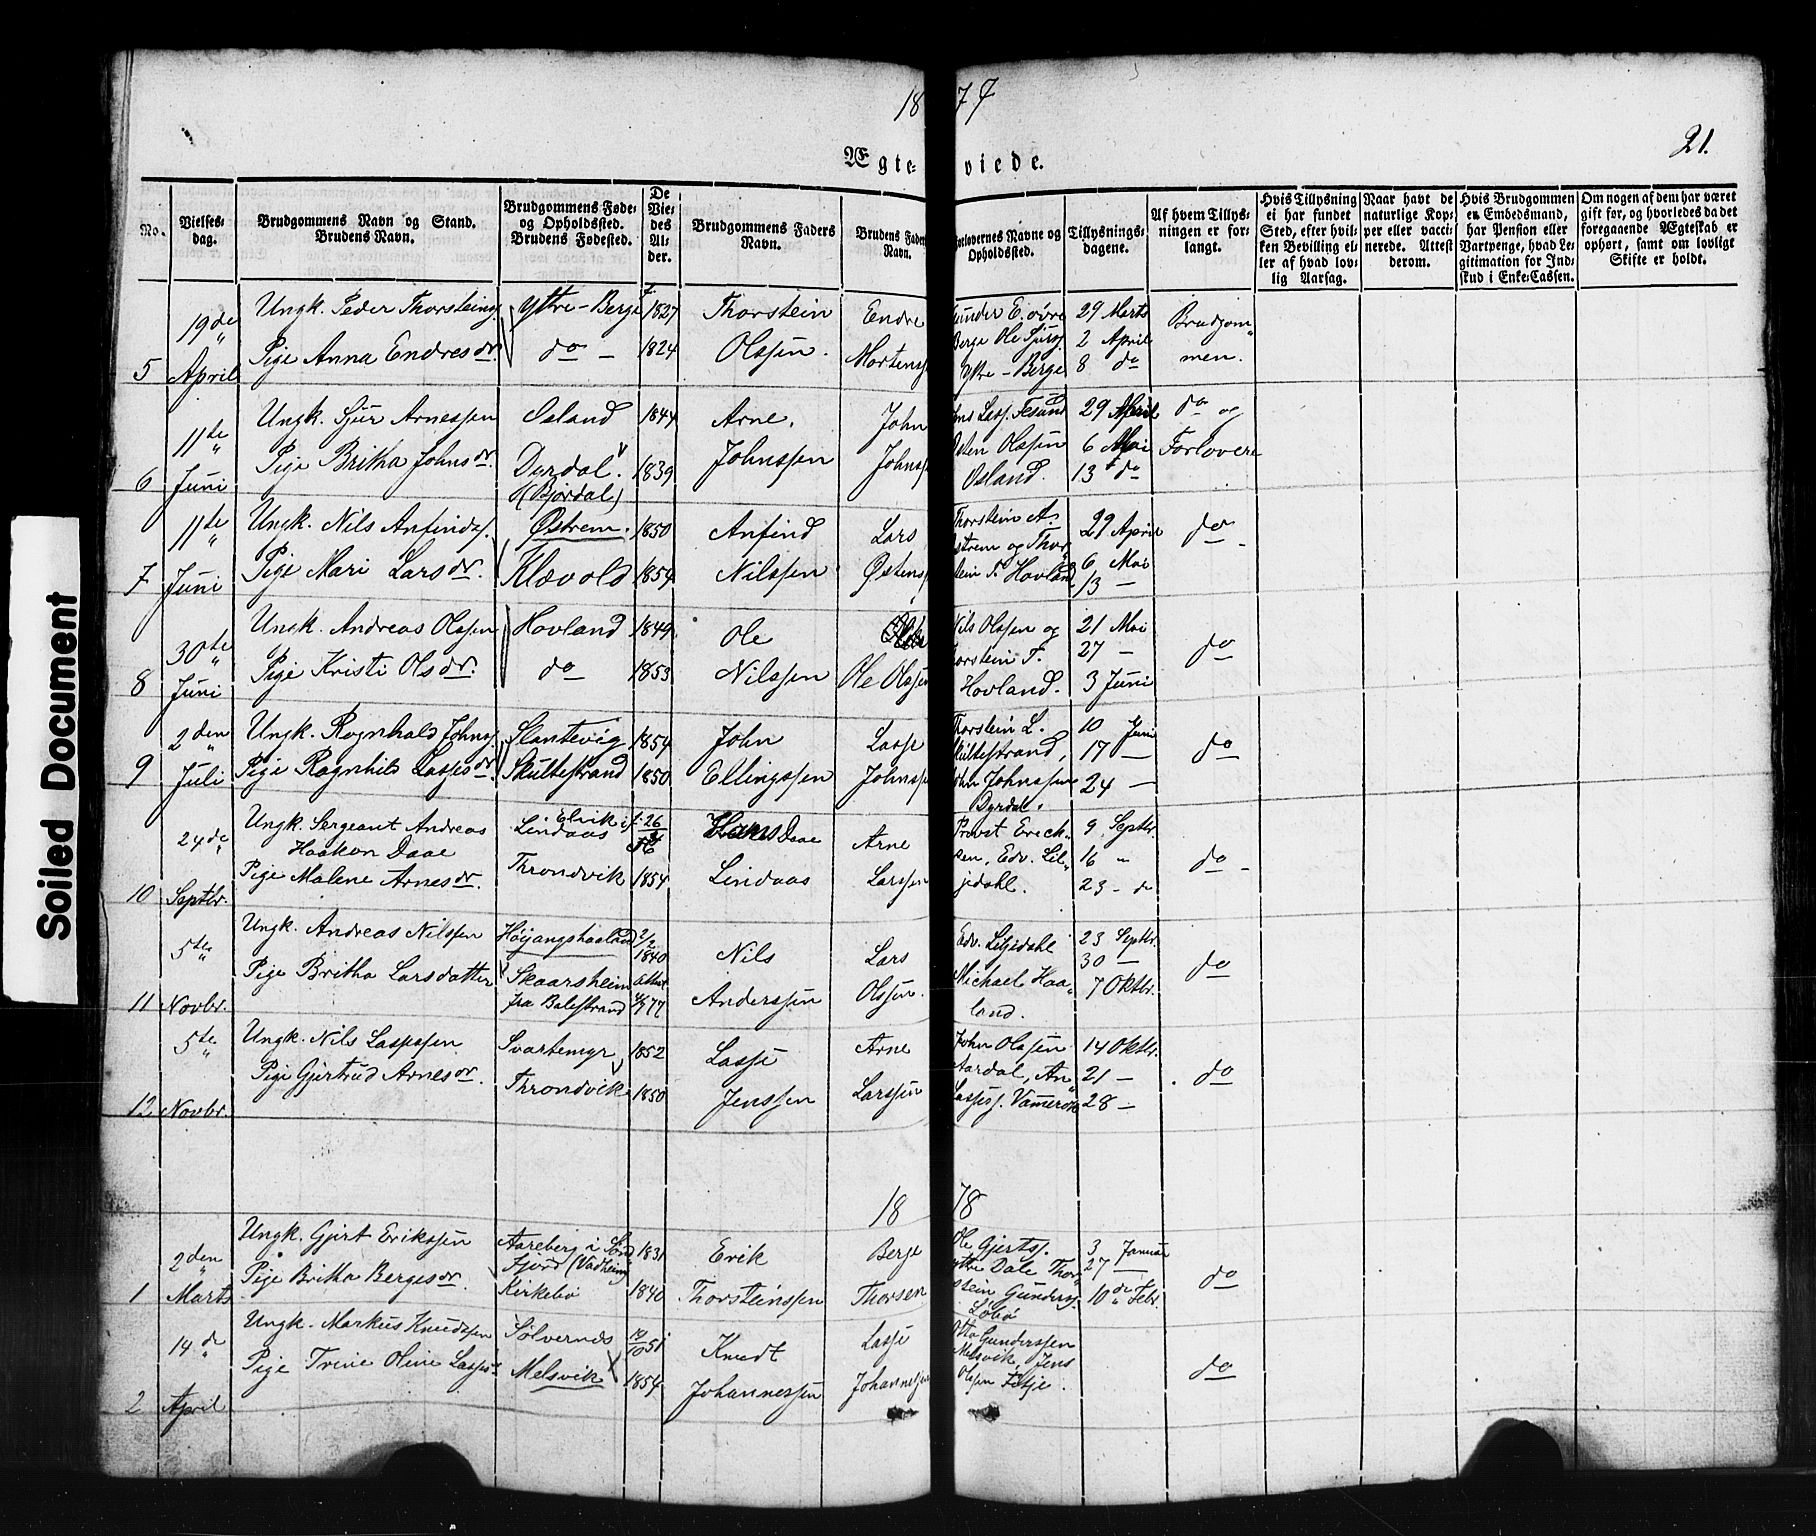 Soiled Document
18 77
21.
Ægteviede.
No.
Vielsesdag.
Brudgommens Navn og Stand.
Brudens Navn.
Brudgommens Føde-
og Opholdssted.
Brudens Fødested.
De
Vie-
des
Al-
der.
Brudgommens Faders
Navn.
Brudens Faders
Navn.
Forlovernes Navne og
Opholdssted.
Tillysnings-
dagene.
Af hvem Tillys-
ningen er for-
langt.
Hvis Tillysning
ei har fundet
Sted, efter hvil-
ken Bevilling el-
ler af hvad lov-
lig Aarsag.
Naar havt de
naturlige Kop-
per eller vacci-
nerede. Attest
derom.
Hvis Brudgommen
er Embedsmand,
har Pension eller
Vartpenge, hvad Le-
gitimation for Ind-
skud i Enke-Cassen.
Om nogen af dem har været
gift før, og hvorledes da det
foregaaende Ægteskab er
ophørt, samt om lovligt
Skifte er holdt.
5 19de April
Ungk. Peder Thorsteins.
Pige Anna Endresdr.
Ytre-Berge
do -
f. 1827
1824
Thorstein
Olssen.
Endre
Mortenss
Gunder E. øvre
Berge Ole Sjurs.
Ytre-Berge
29 Marts
2 April
8 do
Brudgom-
men.
6 11te Juni
Ungk. Sjur Arnessen
Pige Britha Johnsdr.
Osland
Dyrdal.
(Bjordal)
1844
1839
Arne.
Johnssen
John
Johnss
Lass. Tesund
Osten Olssen
Osland.
29 April
6 Mai
13 do
do og
Forlovere
7 11te Juni
Ungk. Nils Anfinds.
Pige Mari Larsdr.
Østrem.
Klævold
1850
1854
Anfind
Nilssen
Lars
Østens
Thorstein A.
Østrem og Thor-
stein T. Hovland
29 April
6 Mai
13 —
do -
8 30te Juni
Ungk. Andreas Olssen
Pige Kristi Olsdr.
Hovland
do
1849
1853
Ole
Nilssen
Ole Olssen
Nils Olssen og
Thorstein T.
Hovland.
21 Mai
27 —
3 Juni
do
9 2den Juli
Ungk. Rognhald Johns.
Pige Ragnhild Lassesdr.
Slantevig
Skultestrand
1854
1850
John
Ellingssen
Lasse
Johnsse
Thorstein L.
Skultestrand,
John Johnssen
Dyrdal.
10 Juni
17 —
24 —
do
10 24de Septbr.
Ungk. Sergeant Andreas
Haakon Daae
Pige Malene Arnesdr.
Elvik i
Lindaas
Throndvik
f. 26
1854
Hans Daae
Lindaas
Arne
Larssen
Provst Erick-
sen, Edv. Lil-
jedahl.
9 Septbr.
16 "
23 - d
do -
11 5te Novbr.
Ungk. Andreas Nilssen
Pige Britha Larsdatter
Høyangshaaland
Skaarsheim
fra Balestrand
2/2 1840
Nils
Anderssen
Lars
Olssen.
Edv. Liljedahl
Michael Haa-
land.
23 Septbr.
30 —
7 Oktbr.
do
12 5te Novbr.
Ungk. Nils Lassessen
Pige Gjertrud Arnesdr.
Svartemyr
Throndvik
1852
1850
Lasse
Jenssen
Arne
Larssen
John Olssen
Aardal, An
Lasses. Vamerak
14 Oktbr.
21 —
28 —
do
18 78
1 2den Marts
Ungk. Gjert Erikssen
Pige Britha Bergesdr.
Aareberg i Sønd
Fjord (Vadheim)
Kirkebø
1831
1840
Erik
Thorsteinssen
Berge
Thorsen
Ole Gjerts.
ytre Dale Thor-
stein Gunders.
Løbø
3 Januar
27 —
10de Febr.
do
2 14de April
Ungk. Markus Knudssen
Pige Trine Oline Lasses.
Sølvernes
Melsvik
10/10 51
1854
Knudt
Johannessen
Lasse
Johannessen
Otto Gunderssen
Melsvik, Jens
Olssen Fetje.
do